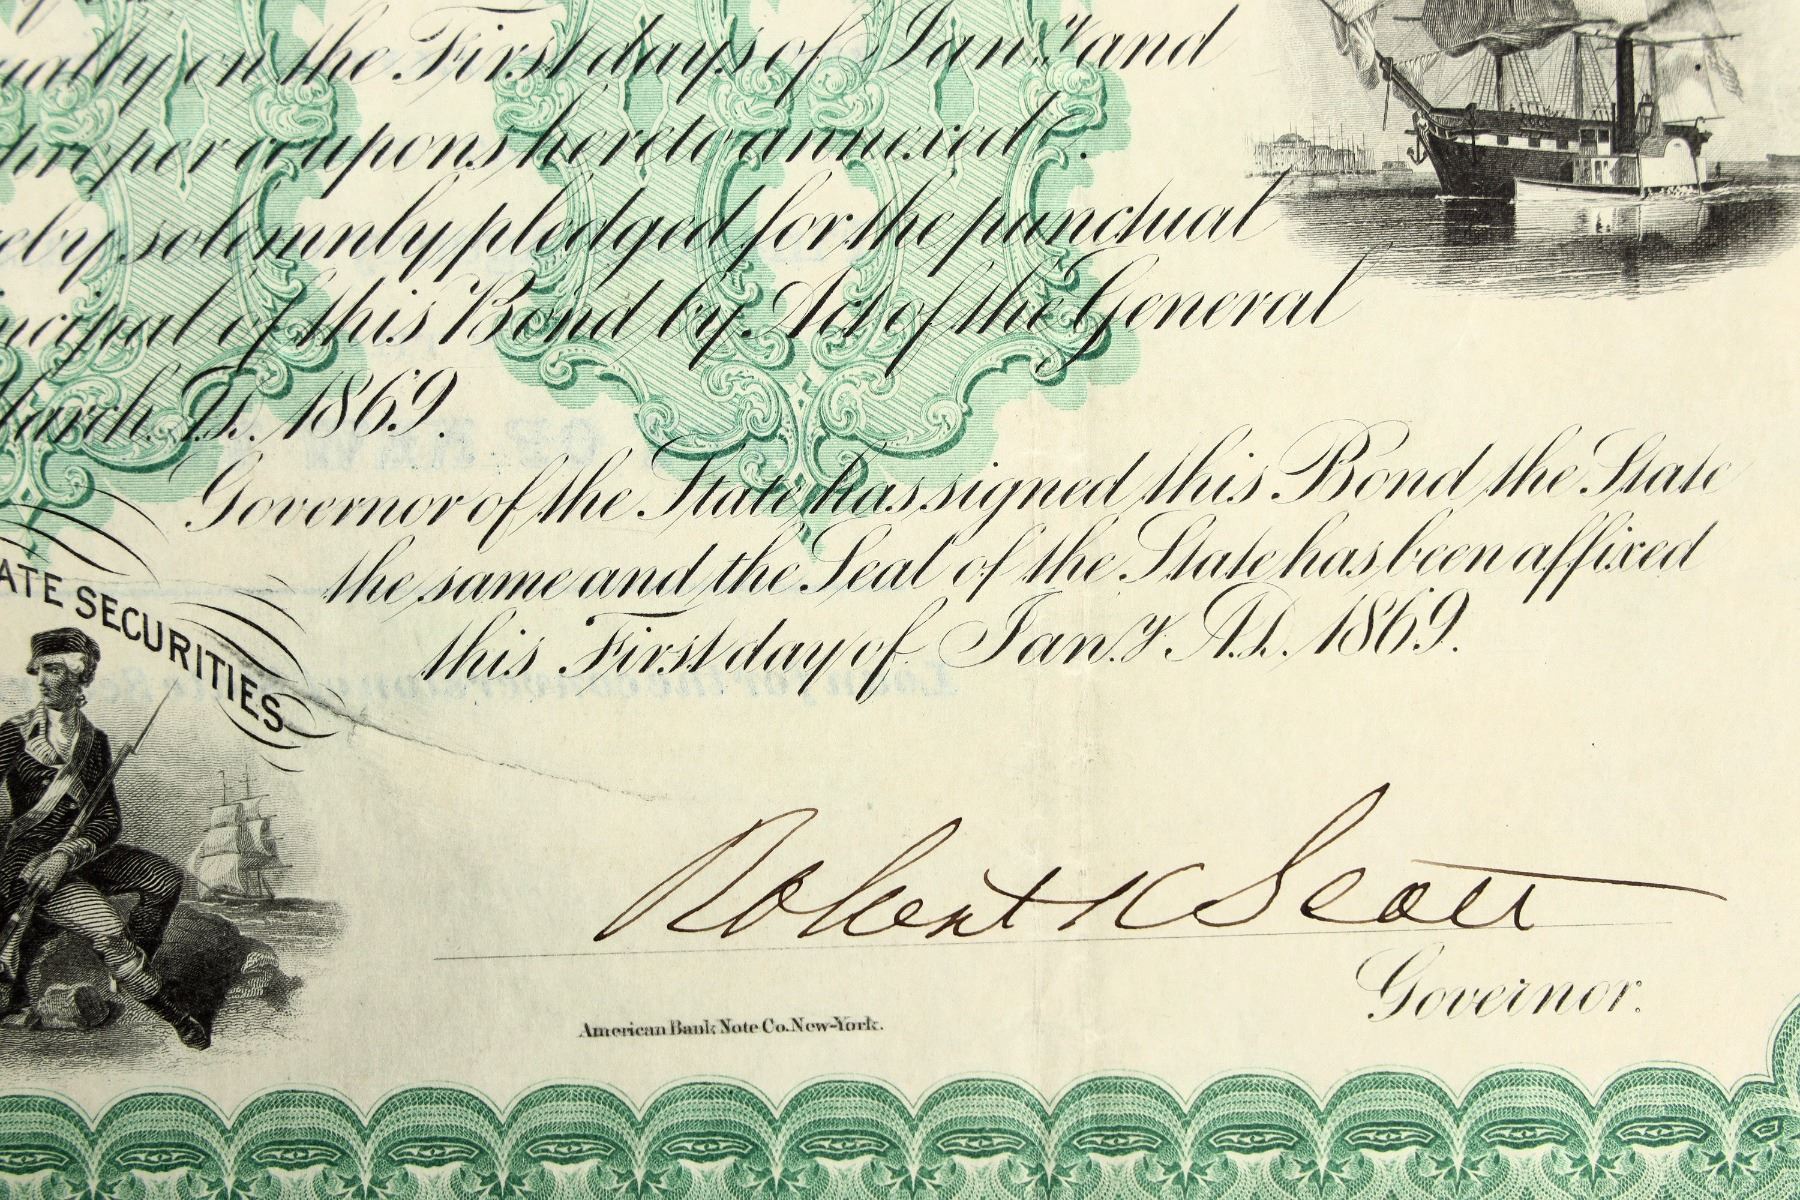 ually on the First days of Jan.y and
per coupons hereto annexed.
reby solemnly pledged for the punctual
incipal of this Bond by Act of the General
March. A.D. 1869.
Governor of the State has signed this Bond the State
the same and the Seal of the State has been affixed
this First day of Jan.y A.D. 1869.
ATE SECURITIES
Robert K Scott
Governor.
American Bank Note Co. New-York.